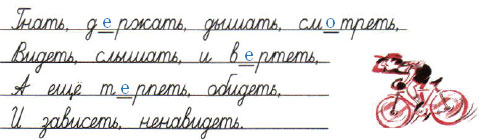 Гнать, держать, дышать, смотреть,
Видеть, слышать, и вертеть,
А ещё терпеть, обидеть,
И зависеть, ненавидеть.